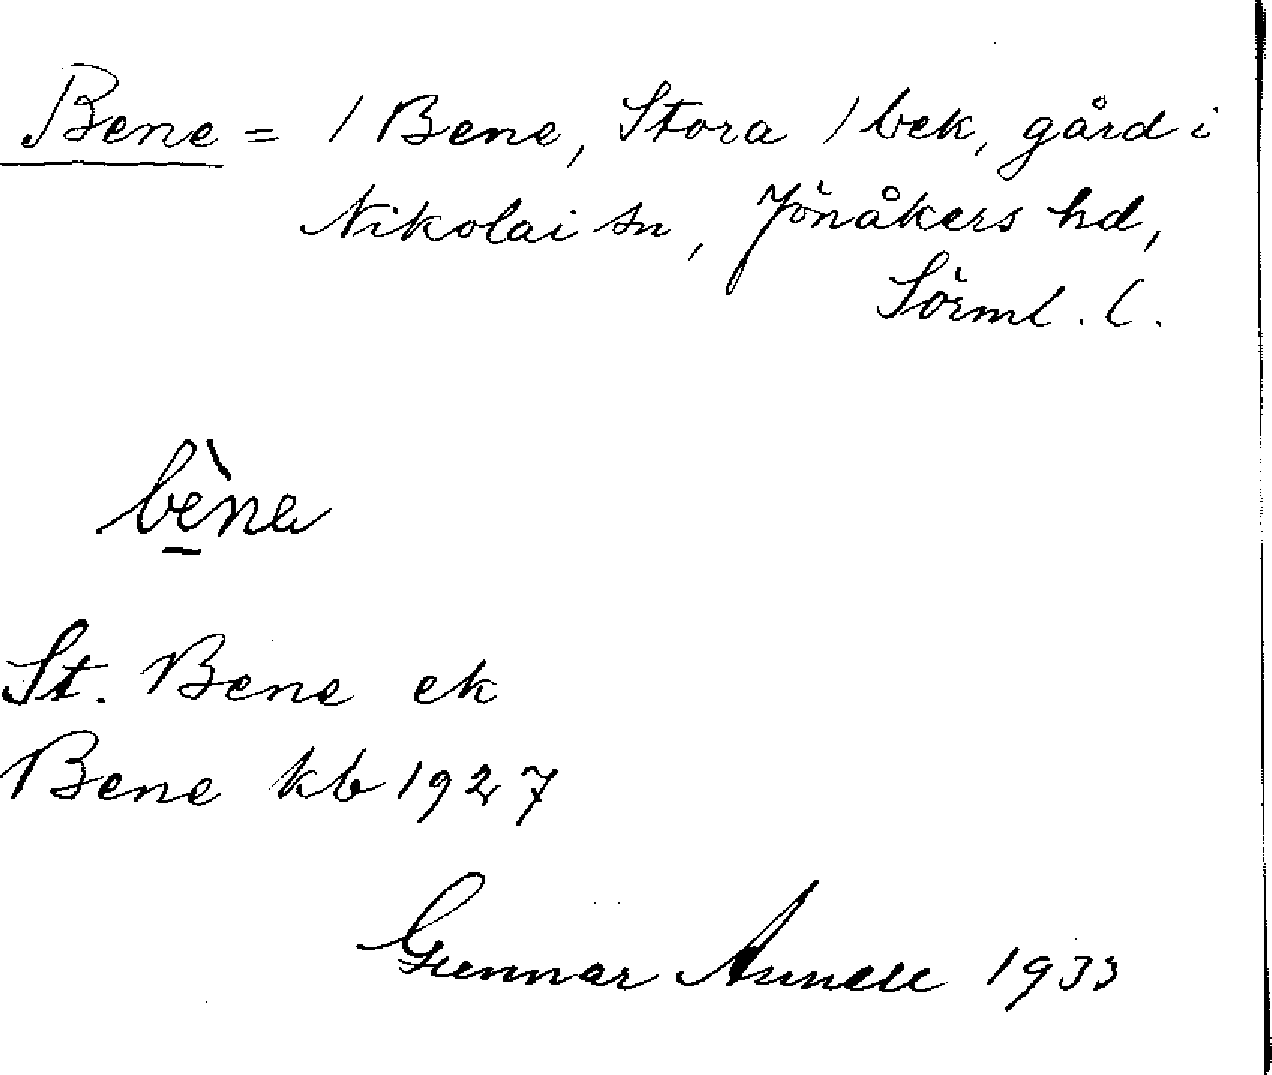 Bene = / Bene, Stora / bek, gård i
Nikolai sn, Jönåkers hd,
Sörml. l.
bène
St. Bene ek
Bene kb 1927
Gunnar 1933